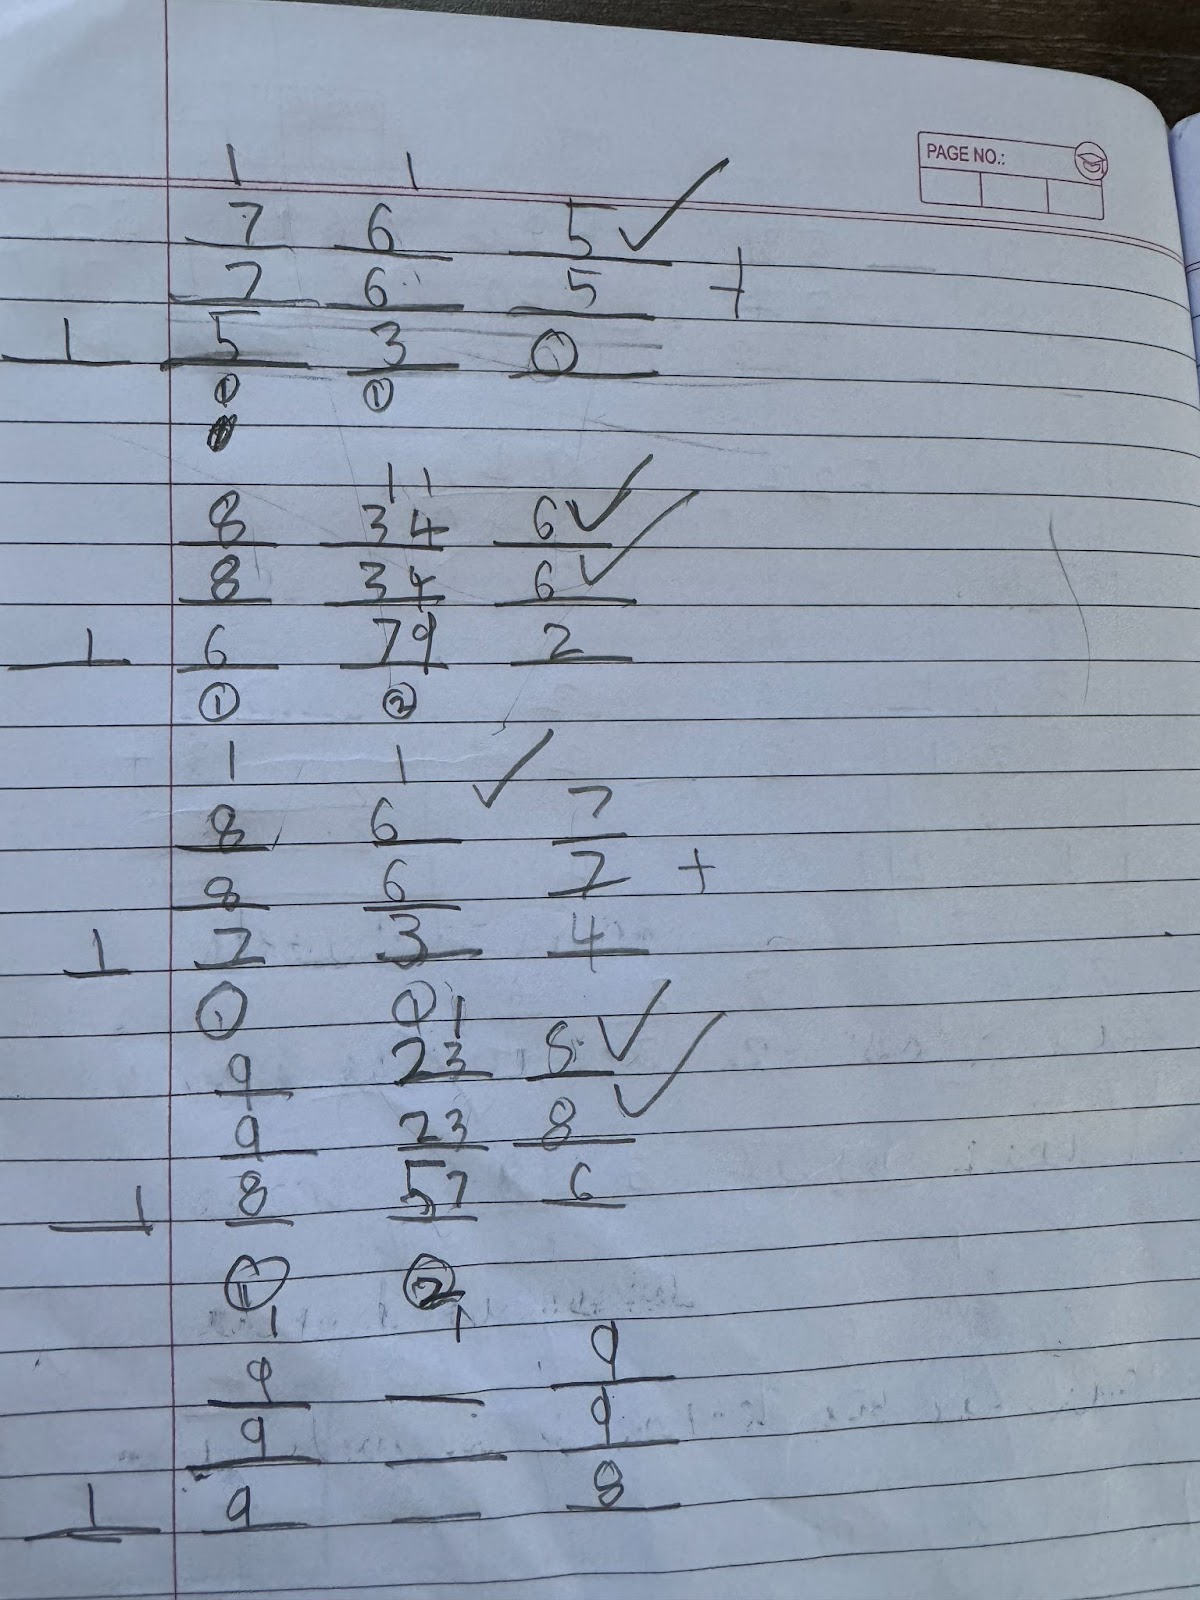 PAGE NO.:
1 1
7 6 5 ✓
7 6 5 +
1 5 3 0
① ①
1 1
8 3 4 6 ✓
8 3 4 6 ✓
1 6 7 9 2
① ②
1 1 ✓
8 6 7
8 6 7 +
1 7 3 4
① ① 1
9 2 3 8 ✓
9 2 3 8 ✓
1 8 5 7 6
① ②
1 1
9 _ 9
9 _ 9
1 9 _ 8